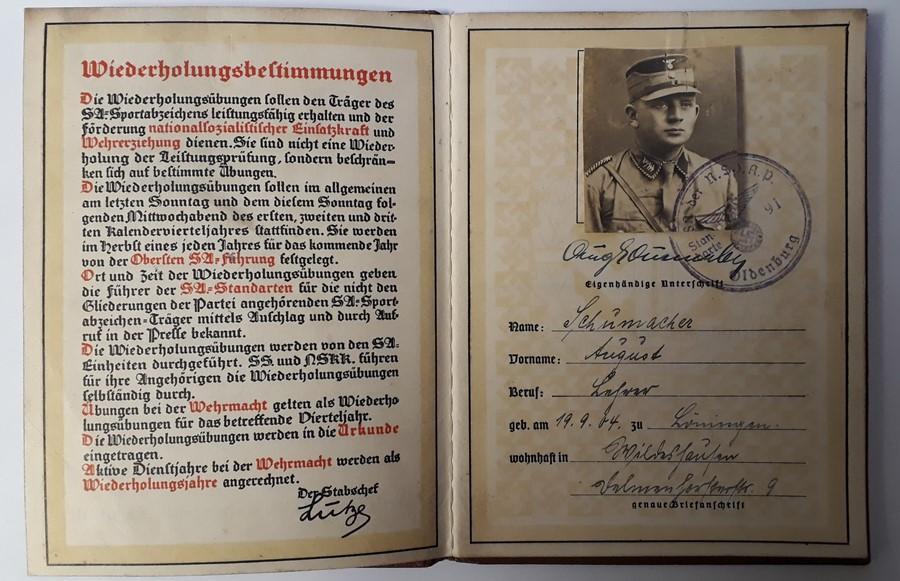 Wiederholungsbestimmungen
Die Wiederholungsübungen sollen den Träger des
SA.-Sportabzeichens leistungsfähig erhalten und der
Förderung nationalsozialistischer Einsatzkraft und
Wehrerziehung dienen. Sie sind nicht eine Wieder-
holung der Leistungsprüfung, sondern beschrän-
ken sich auf bestimmte Übungen.
Die Wiederholungsübungen sollen im allgemeinen
am letzten Sonntag und dem diesem Sonntag fol-
genden Mittwochabend des ersten, zweiten und drit-
ten Kalendervierteljahres stattfinden. Sie werden
im Herbst eines jeden Jahres für das kommende Jahr
von der Obersten SA-Führung festgelegt.
Ort und Zeit der Wiederholungsübungen geben
die Führer der SA.-Standarten für die nicht den
Gliederungen der Partei angehörenden SA-Sport-
abzeichen-Träger mittels Anschlag und durch Auf-
ruf in der Presse bekannt.
Die Wiederholungsübungen werden von den SA.-
Einheiten durchgeführt. SS. und NSKK. führen
für ihre Angehörigen die Wiederholungsübungen
selbständig durch.
Übungen bei der Wehrmacht gelten als Wiederho
lungsübungen für das betreffende Vierteljahr.
Die Wiederholungsübungen werden in die Urkunde
eingetragen.
Aktive Dienstjahre bei der Wehrmacht werden als
Wiederholungsjahre angerechnet.
Der Stabschef
Lutze
SA der N.S.D.A.P.
Stan-
darte
91
Oldenburg
Aug Schumacher
Eigenhändige Unterschrift
Name: Schumacher
Vorname: August
Beruf: Lehrer
geb. am 19.9.04. zu Löningen.
wohnhaft in Wildeshausen
Delmenhorsterstr. 9
genaue Briefanschrift